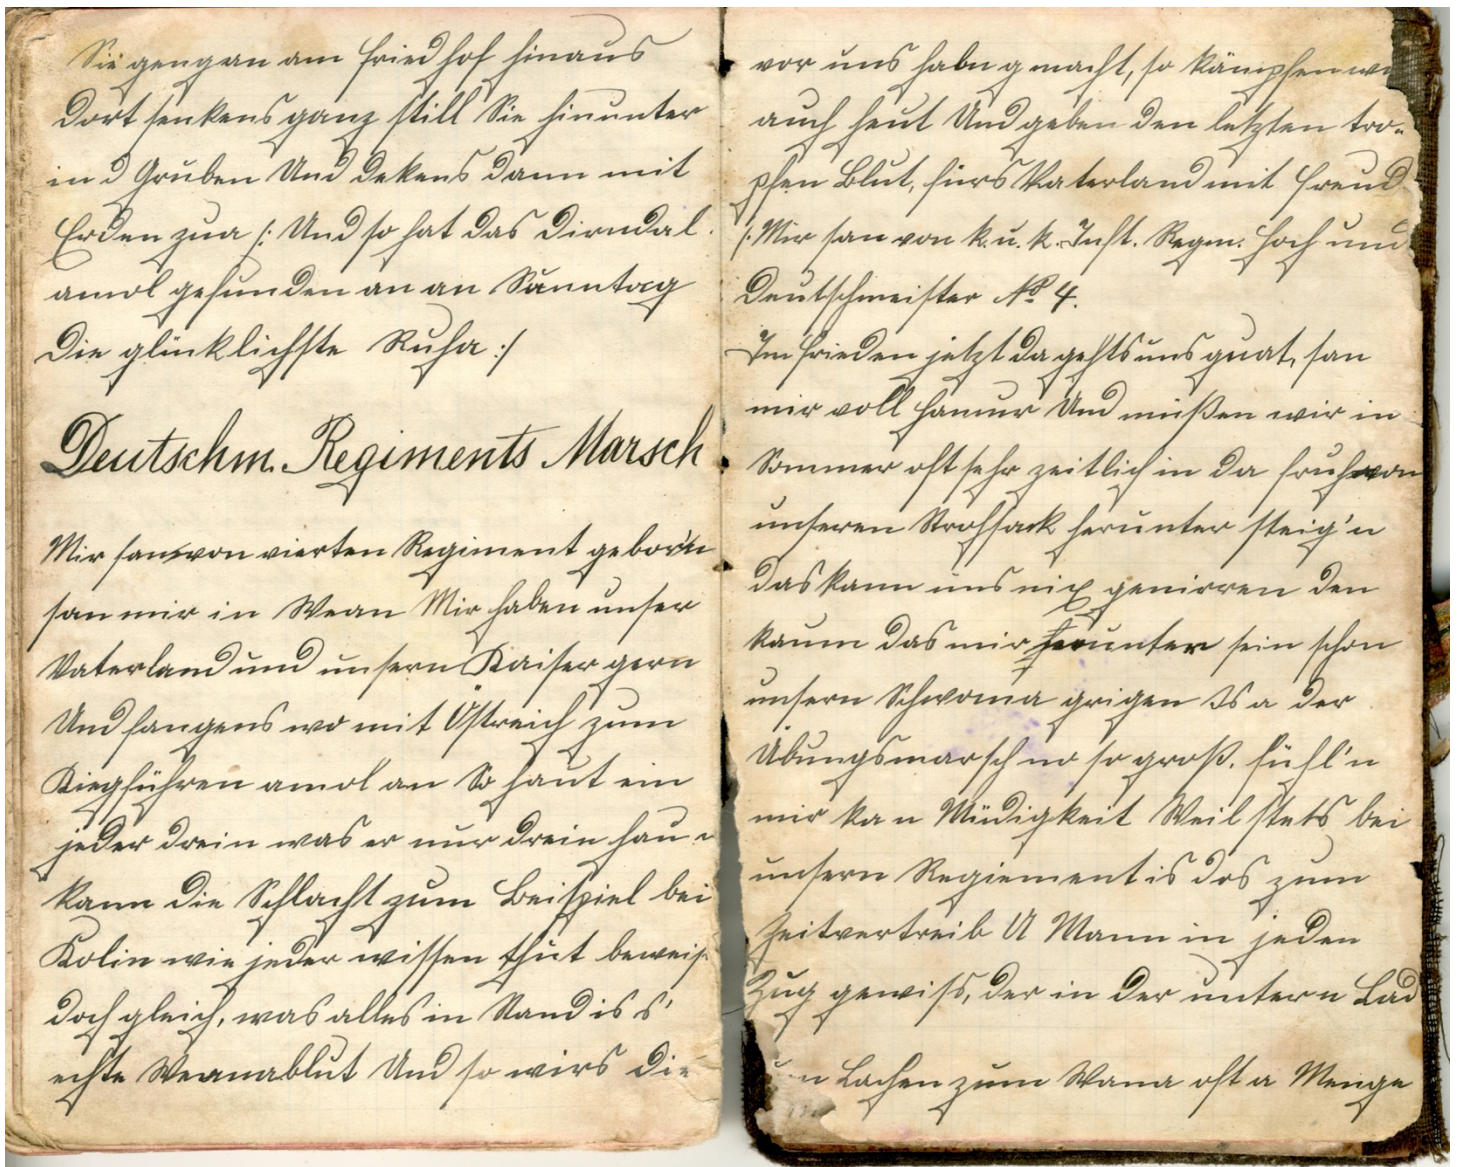 Sie gengan am Friedhof hinaus
Dort senkens ganz still Sie hinunter
in d Gruben Und dekens dann mit
Erden zua /: Und so hat das Dirndal
amol gefunden an an Sunntag
Die glücklichste Ruha :/
Deutschm. Regiments Marsch
Mir san von vierten Regiment gebor'n
san mir in Wean Mir haben unser
Vaterland und unsern Kaiser gern
Und fangens wo mit Östreich zum
Kiegführen amol an So haut ein
jeder drein was er nur drein hau
kann die Schlacht zum Beispiel bei
Kolin wie jeder wissen thut beweis
doch gleich, was alles in Stand is s'
echte Weanablut Und so wirs die
vor uns habn gmacht, so kämpfen wi
auch heut Und geben den letzten tro-
pfen Blut, fürs Vaterland mit Freud
/: Mir san von k. u. k. Inft. Regm. Hoch und
Deutschmeister No 4.
Im Frieden jetzt da gehts uns guat, san
mir voll Hamur Und müßen wir in
Sommer oft sehr zeitlich in da fruh von
unseren Strohsack herunter steig'n
das kann uns nix geniren den
kaum das mir herunter sein schon
unsern Schwoma grigen Is a der
Übungsmarsch no so groß. fühl'n
mir ka n Müdigkeit Weil stets bei
unsern Regiement is dos zum
Zeitvertreib A Mann in jeden
Zug gewiss, der in der untern Lad
n Lachen zum Wana oft a Menge